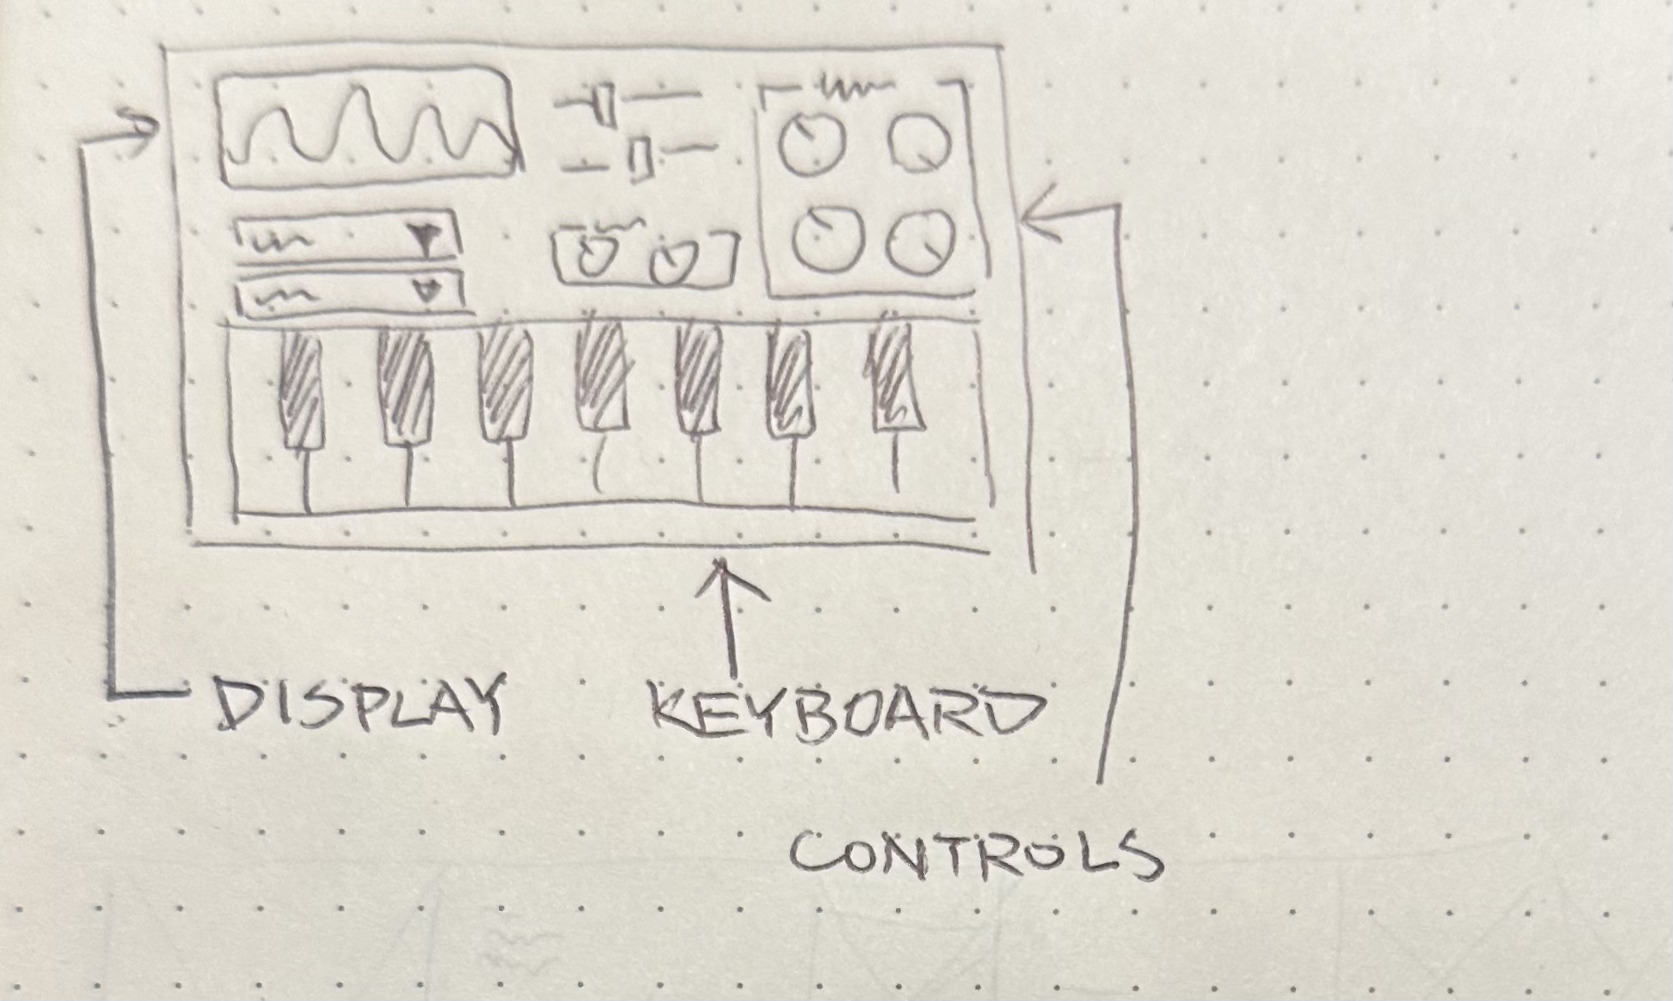 DISPLAY
KEYBOARD
CONTROLS